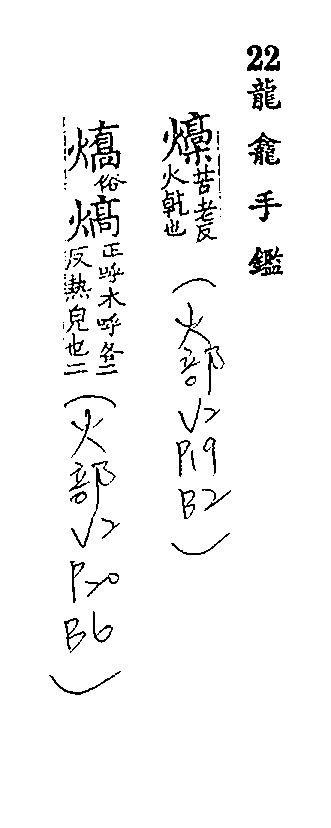 22龍龕手鑑
燺苦老反火乾也（火部V2P19B2）
熇俗熇正呼木呼各二反熱皃也二（火部V2P20B6）